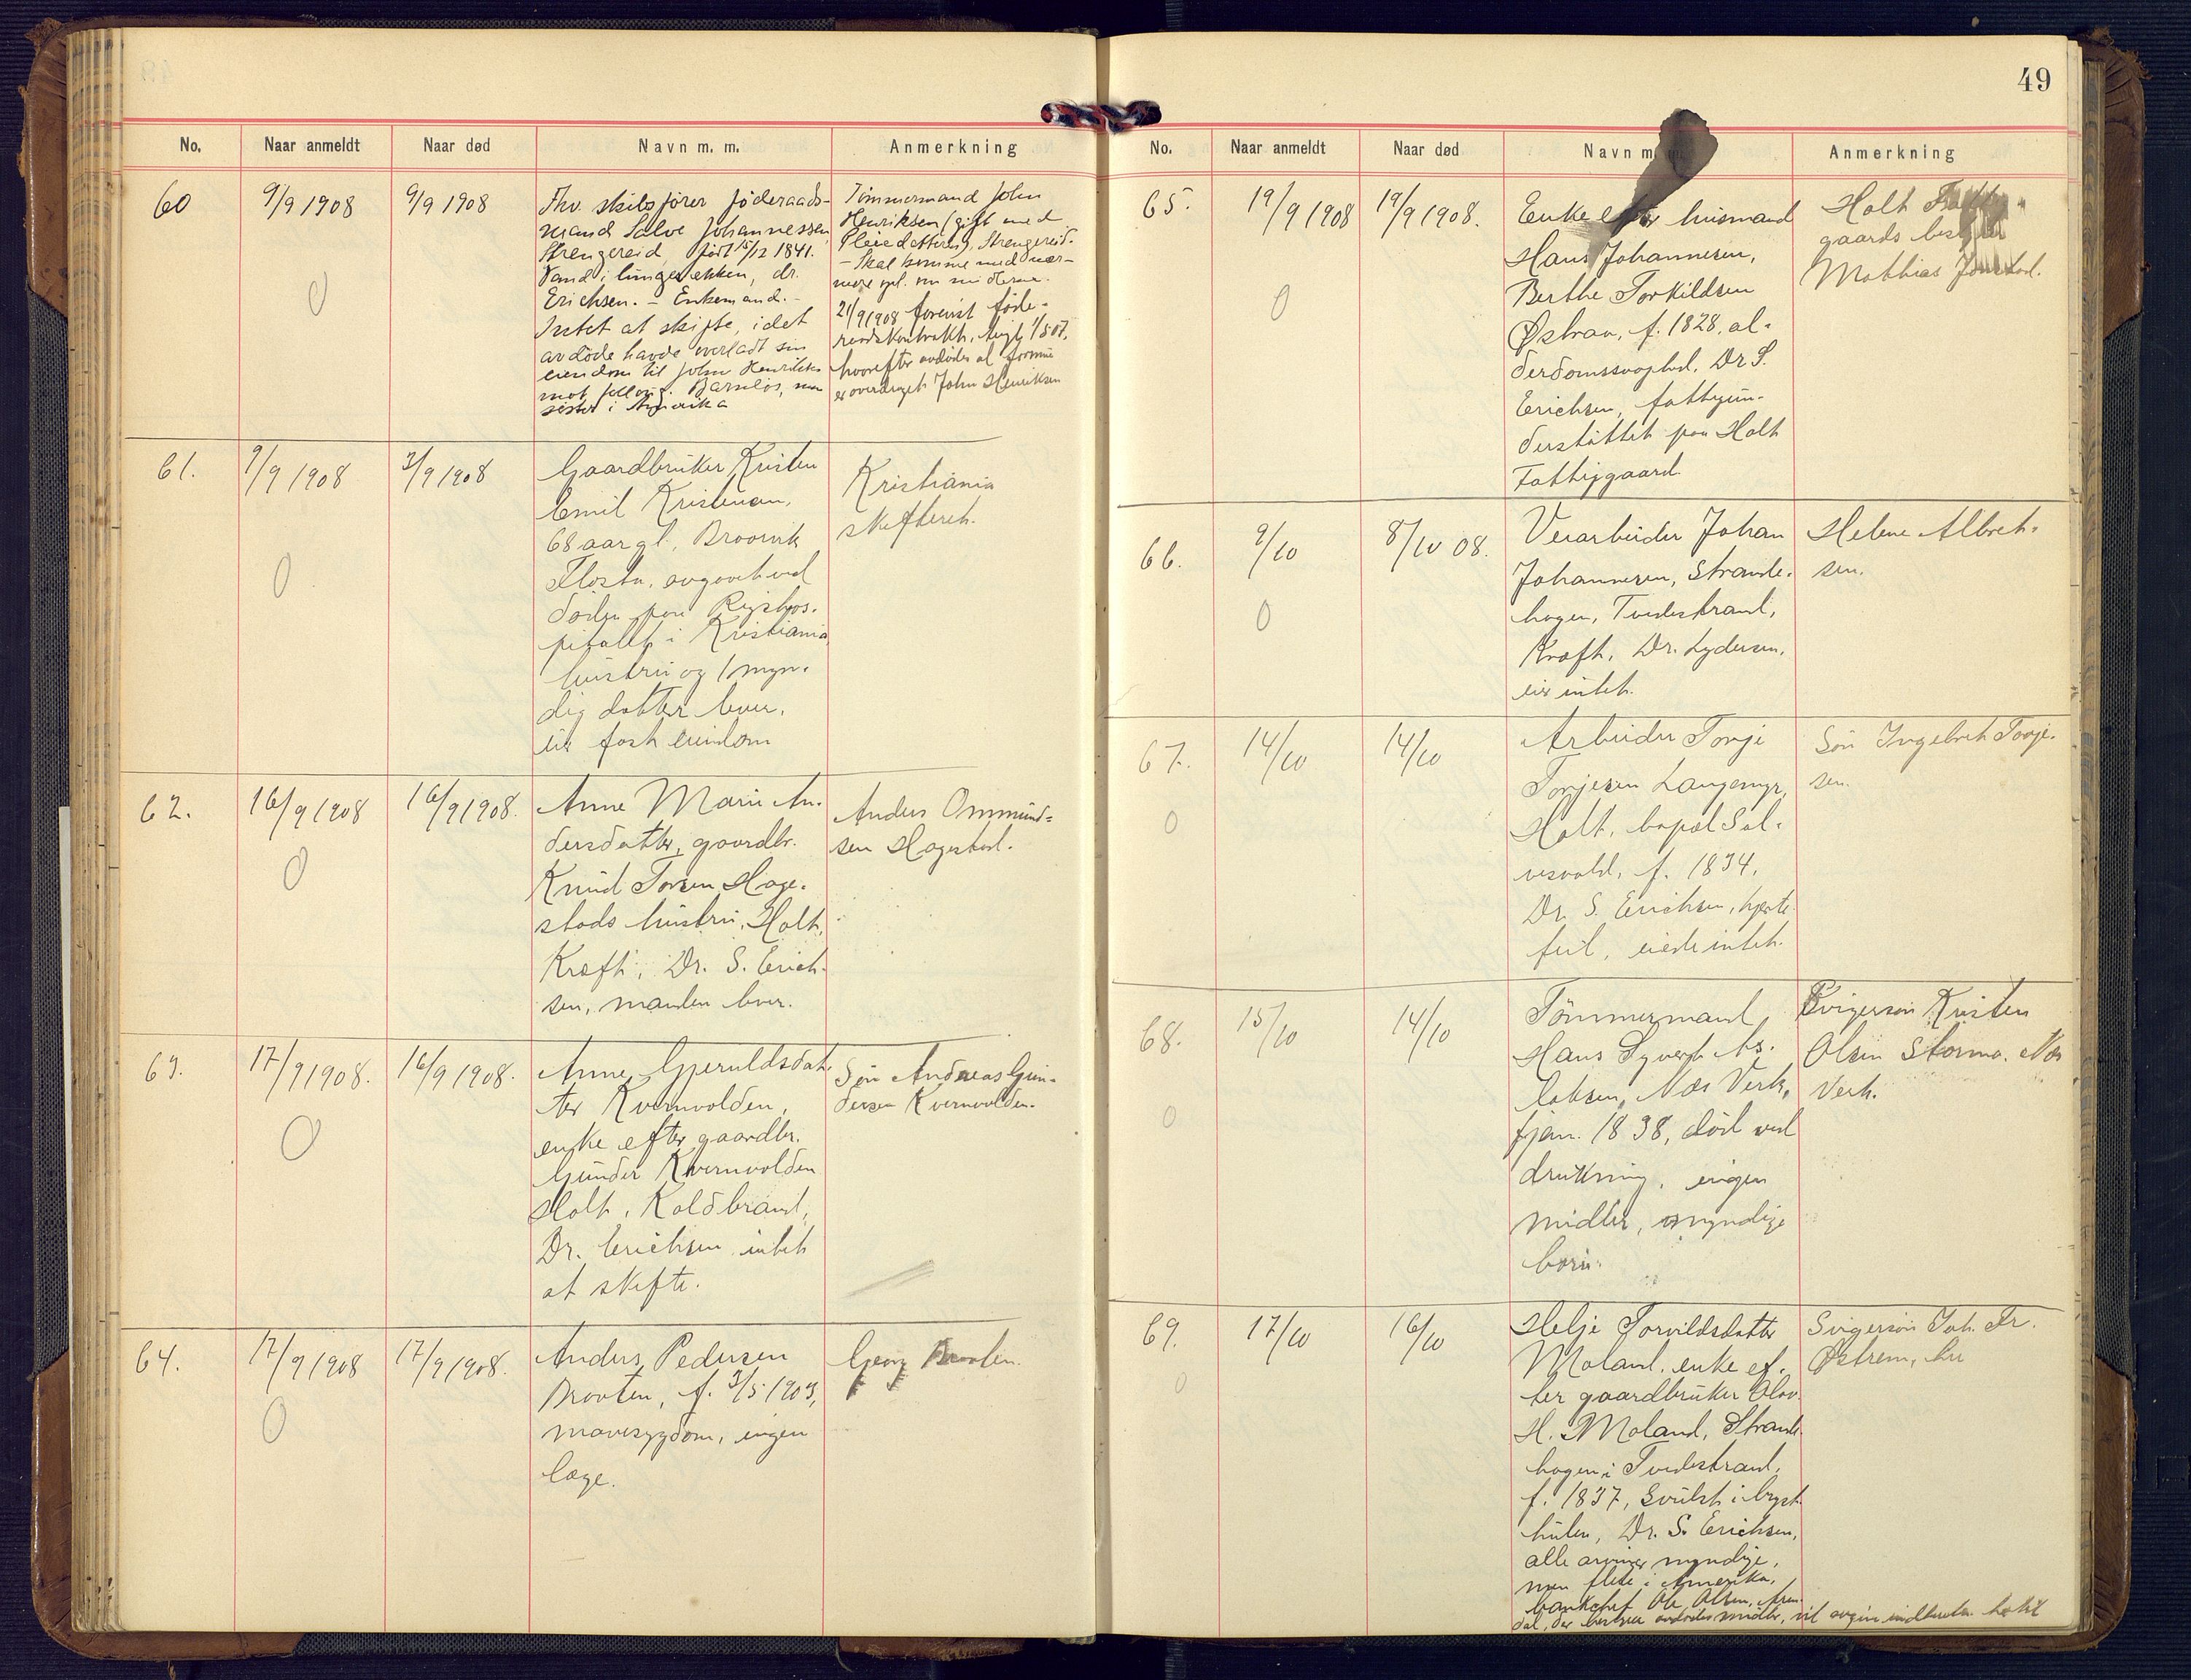 No.
Naar anmeldt
Naar død
Navn m. m.
Anmerkning
60
9/9 1908
9/9 1908
Fhv. skibsfører føderaads-
mand Salve Johannessen
Strengereid, født 15/12 1841.
Vand i lungesækken, dr.
Erichsen. - Enkemand. -
Intet at skifte, idet
avdöde havde overladt sin
eiendom til John Henriksen
mot föderaad. Barnlös, men
søster i Amerika
Tömmermand John
Henriksen (gift med
Pleiedatteren), Strengereid.
- Skal komme med nær-
mere
21/9 1908 forevist föde-
raadskontrakt, tingl. 1/5 07,
hvorefter avdödes al formue
er overdraget John Henriksen
0
61.
9/9 1908
3/9 1908
Gaardbruker Kristen
Emil Kristensen,
68 aar gl., Braavik
Flosta, avgaat ved
döden paa Rigshos-
pitalet i Kristiania
hustru og 1 myn-
dig datter lever,
eier fast eiendom
Kristiania
skifteret.
0
62.
16/9 1908
16/9 1908.
Anne Marie An-
dersdatter, gaardbr.
Knud Torsen Hage-
stads hustru, Holt,
Kræft, Dr. S. Erich-
sen, manden lever.
Anders Ommund-
sen Hagestad.
0
63.
17/9 1908.
16/9 1908.
Anne Gjeruldsdat-
ter Kvernvolden,
enke efter gaardbr.
Gunder Kvernvolden
Holt, Koldbrand,
Dr. Erichsen, intet
at skifte.
Sön Andreas Gun-
dersen Kvernvolden.
0
64.
17/9 1908
17/9 1908.
Anders Pedersen
Braaten, f. 3/5 1903,
mavesygdom, ingen
læge.
Georg Braaten.
0
49
No.
Naar anmeldt
Naar død
Navn m. m.
Anmerkning
65.
19/9 1908
19/9 1908.
Enke efter husmand
Hans Johannesen,
Berthe Torkildsen
Østraa, f. 1828, al-
derdomssvaghed, Dr S.
Erichsen, fattigun-
derstöttet paa Holt
Fattiggaard
Holt Fattig-
gaards bestyrer
Mathias
0
66.
9/10
8/10 08.
Veiarbeider Johan
Johannesen, Strande-
hagen, Tvedestrand,
Kræft, Dr. Lydersen,
eier intet.
Helene Albret-
sen.
0
67.
14/10
14/10
Arbeider Torje
Torjesen Langemyr,
Holt, bopæl Sol-
vesvold, f. 1834,
Dr. S. Erichsen, hjerte-
feil, eiede intet.
Sön Ingebret Torje-
sen.
0
68.
15/10
14/10
Tömmermand
Hans Syvert As-
laksen, Næs Verk,
f jan. 1838, död ved
drukning, ingen
midler, myndige
barn.
Svigersön Kristen
Olsen Stormo, Næs
Verk.
0
69.
17/10
16/10
Helje Torvildsdatter
Moland, enke ef-
ter gaardbruker Olav
H. Moland, Strande-
hagen i Tvedestrand,
f. 1837, Svulst i bryst-
hulen, Dr. S. Erichsen,
alle arvinger myndige,
men flere i Amerika,
bankchef Ole Olsen, Aren-
dal, der bestyrer avdödes midler, vil avgive indberetn. hertil
Svigersön Joh. Fr.
Østrem, her
0